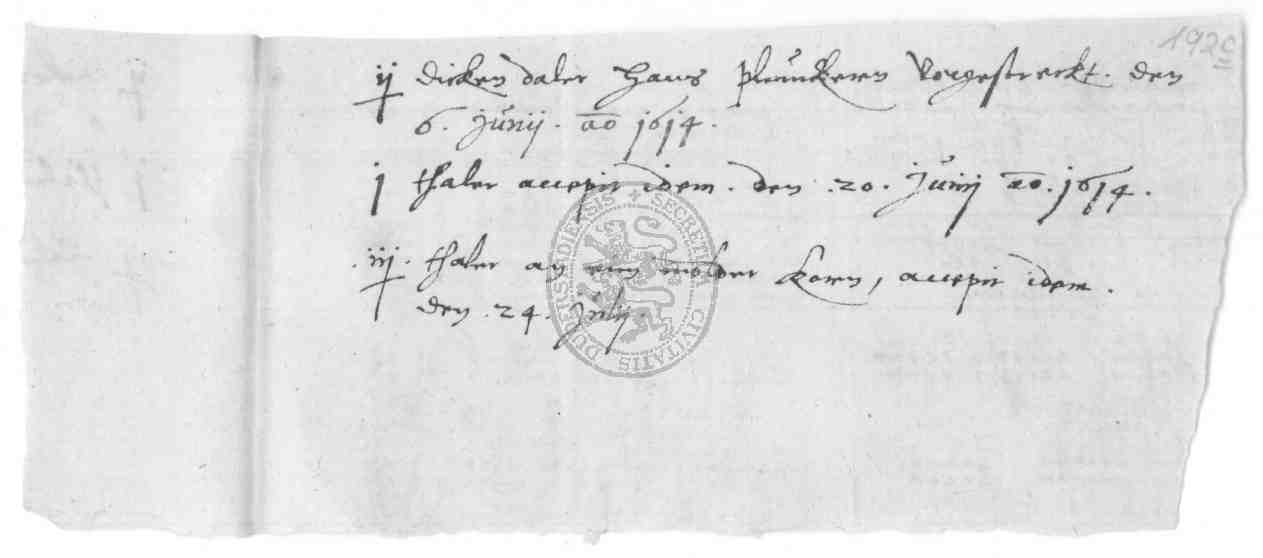 1920
ij dicken daler Hans Plünckeren Vorgestreckt. den
6. Junij. ao 1614.
j thaler accepit idem. den .20. Junij ao. 1614.
.iij. thaler an ein molder Korn, accepit idem.
den .24. Julij.
SECRETU CIVITATIS DURISDIENSIS